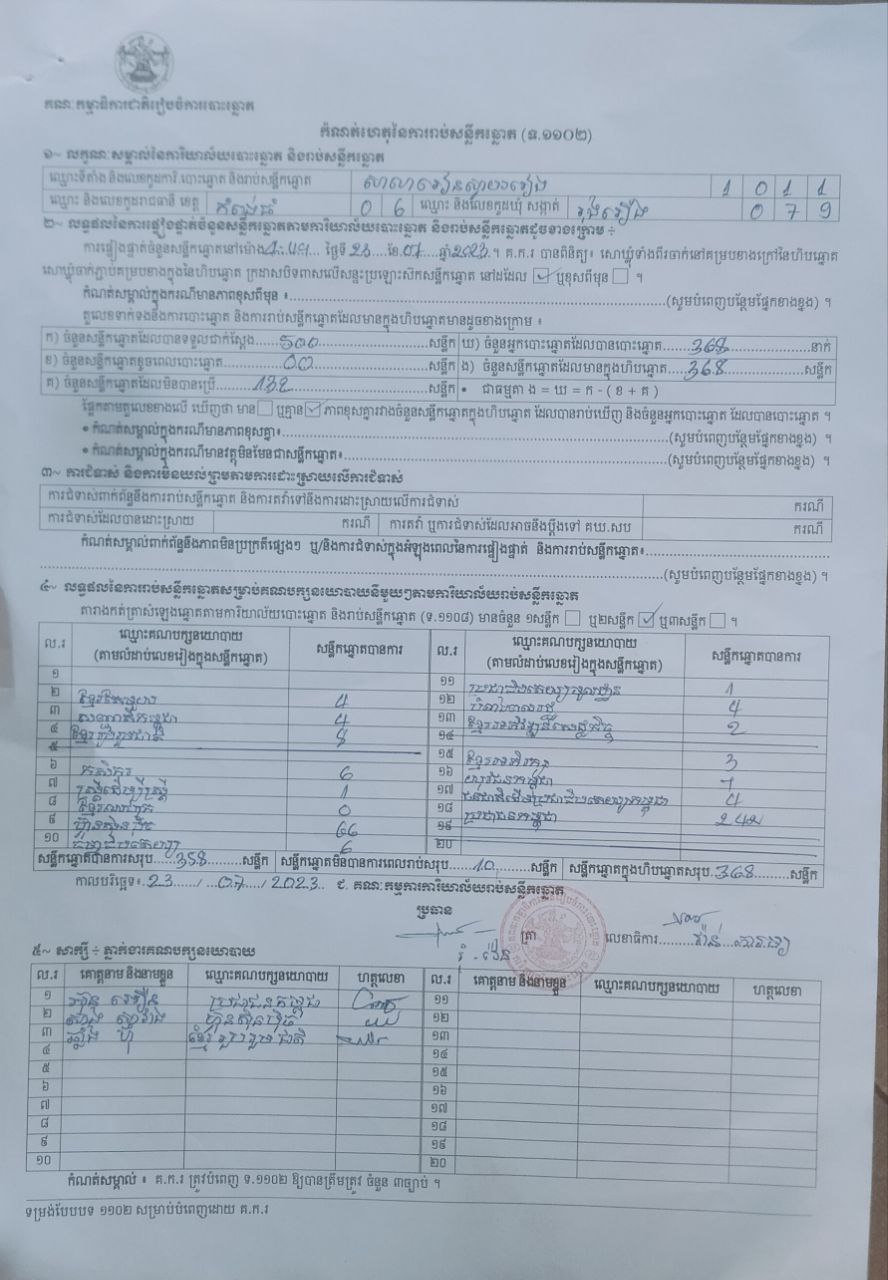 គណៈកម្មាធិការជាតិរៀបចំការបោះឆ្នោត
កំណត់ហេតុនៃការរាប់សន្លឹកឆ្នោត (ទ.១១០២)
១~ លក្ខណៈសម្គាល់នៃការិយាល័យបោះឆ្នោត និងរាប់សន្លឹកឆ្នោត
ឈ្មោះទីតាំង និងលេខកូដការិ.បោះឆ្នោត និងរាប់សន្លឹកឆ្នោត សាលារៀនស្វាយរៀង 1 0 1 1
ឈ្មោះ និងលេខកូដរាជធានី ខេត្ត កំពង់ធំ 0 6 ឈ្មោះ និងលេខកូដឃុំ សង្កាត់ រុងរឿង 0 7 9
២~ លទ្ធផលនៃការផ្ទៀងផ្ទាត់ចំនួនសន្លឹកឆ្នោតតាមការិយាល័យបោះឆ្នោត និងរាប់សន្លឹកឆ្នោតដូចខាងក្រោម ÷
ការផ្ទៀងផ្ទាត់ចំនួនសន្លឹកឆ្នោតនៅម៉ោង ថ្ងៃទី 23 ខែ 07 ឆ្នាំ 2023 ។ គ.ក.រ បានពិនិត្យ៖ សោឃ្លុំទាំងពីរចាក់នៅគម្របខាងក្រៅនៃហិបឆ្នោត
សោឃ្លុំចាក់ភ្ជាប់គម្របខាងក្នុងនៃហិបឆ្នោត ក្រដាសបិទពាសលើសន្ទះប្រឡោះសិកសន្លឹកឆ្នោត នៅដដែល ឬខុសពីមុន ។
កំណត់សម្គាល់ក្នុងករណីមានភាពខុសពីមុន ៖ (សូមបំពេញបន្ថែមផ្នែកខាងខ្នង) ។
តួលេខទាក់ទងនឹងការបោះឆ្នោត និងការរាប់សន្លឹកឆ្នោតដែលមានក្នុងហិបឆ្នោតមានដូចខាងក្រោម ៖
ក) ចំនួនសន្លឹកឆ្នោតដែលបានទទួលជាក់ស្តែង 500 សន្លឹក ឃ) ចំនួនអ្នកបោះឆ្នោតដែលបានបោះឆ្នោត 368 នាក់
ខ) ចំនួនសន្លឹកឆ្នោតខូចពេលបោះឆ្នោត 00 សន្លឹក ង) ចំនួនសន្លឹកឆ្នោតដែលមានក្នុងហិបឆ្នោត 368 សន្លឹក
គ) ចំនួនសន្លឹកឆ្នោតដែលមិនបានប្រើ 132 សន្លឹក • ជាធម្មតា ង = ឃ = ក - ( ខ + គ )
ផ្អែកតាមតួលេខខាងលើ ឃើញថា មាន ឬគ្មាន ភាពខុសគ្នារវាងចំនួនសន្លឹកឆ្នោតក្នុងហិបឆ្នោត ដែលបានរាប់ឃើញ និងចំនួនអ្នកបោះឆ្នោត ដែលបានបោះឆ្នោត ។
• កំណត់សម្គាល់ក្នុងករណីមានភាពខុសគ្នា៖ (សូមបំពេញបន្ថែមផ្នែកខាងខ្នង) ។
• កំណត់សម្គាល់ក្នុងករណីមានវត្ថុមិនមែនជាសន្លឹកឆ្នោត៖ (សូមបំពេញបន្ថែមផ្នែកខាងខ្នង) ។
៣~ ការជំទាស់ និងការមិនយល់ព្រមតាមការដោះស្រាយលើការជំទាស់
ការជំទាស់ពាក់ព័ន្ធនឹងការរាប់សន្លឹកឆ្នោត និងការតវ៉ាទៅនឹងការដោះស្រាយលើការជំទាស់ ករណី
ការជំទាស់ដែលបានដោះស្រាយ ករណី ការតវ៉ា ឬការជំទាស់ដែលអាចនឹងប្តឹងទៅ គឃ.សប ករណី
កំណត់សម្គាល់ពាក់ព័ន្ធនឹងភាពមិនប្រក្រតីផ្សេងៗ ឬ/និងការជំទាស់ក្នុងអំឡុងពេលនៃការផ្ទៀងផ្ទាត់ និងការរាប់សន្លឹកឆ្នោត៖
(សូមបំពេញបន្ថែមផ្នែកខាងខ្នង) ។
៤~ លទ្ធផលនៃការរាប់សន្លឹកឆ្នោតសម្រាប់គណបក្សនយោបាយនីមួយៗតាមការិយាល័យរាប់សន្លឹកឆ្នោត
តារាងកត់ត្រាសំឡេងឆ្នោតតាមការិយាល័យបោះឆ្នោត និងរាប់សន្លឹកឆ្នោត (ទ.១១០៨) មានចំនួន ១សន្លឹក ឬ២សន្លឹក ឬ៣សន្លឹក ។
ល.រ ឈ្មោះគណបក្សនយោបាយ (តាមលំដាប់លេខរៀងក្នុងសន្លឹកឆ្នោត) សន្លឹកឆ្នោតបានការ ល.រ ឈ្មោះគណបក្សនយោបាយ (តាមលំដាប់លេខរៀងក្នុងសន្លឹកឆ្នោត) សន្លឹកឆ្នោតបានការ
១ ១១ 1
២ 4 ១២ 4
៣ 4 ១៣ 2
៤ ខ្មែររួបរួមជាតិ ១៤
៥ ១៥ 3
៦ កសិករ 6 ១៦ យុវជនកម្ពុជា
៧ ស្ត្រីដើម្បីស្ត្រី 1 ១៧ 4
៨ 0 ១៨ ប្រជាជនកម្ពុជា
៩ ហ៊្វុនស៊ិនប៉ិច 66 ១៩
១០ 6 ២០
សន្លឹកឆ្នោតបានការសរុប 358 សន្លឹក សន្លឹកឆ្នោតមិនបានការពេលរាប់សរុប 10 សន្លឹក សន្លឹកឆ្នោតក្នុងហិបឆ្នោតសរុប 368 សន្លឹក
កាលបរិច្ឆេទ៖ 23 / 07 / 2023 ជ. គណៈកម្មការការិយាល័យរាប់សន្លឹកឆ្នោត
ប្រធាន
ត្រា លេខាធិការ
៥~ សាក្សី ÷ ភ្នាក់ងារគណបក្សនយោបាយ
ល.រ គោត្តនាម និងនាមខ្លួន ឈ្មោះគណបក្សនយោបាយ ហត្ថលេខា ល.រ គោត្តនាម និងនាមខ្លួន ឈ្មោះគណបក្សនយោបាយ ហត្ថលេខា
១ ប្រជាជនកម្ពុជា ១១
២ ហ៊្វុនស៊ិនប៉ិច ១២
៣ ខ្មែររួបរួមជាតិ ១៣
៤ ១៤
៥ ១៥
៦ ១៦
៧ ១៧
៨ ១៨
៩ ១៩
១០ ២០
កំណត់សម្គាល់ ៖ គ.ក.រ ត្រូវបំពេញ ទ.១១០២ ឱ្យបានត្រឹមត្រូវ ចំនួន ៣ច្បាប់ ។
ទម្រង់បែបបទ ១១០២ សម្រាប់បំពេញដោយ គ.ក.រ